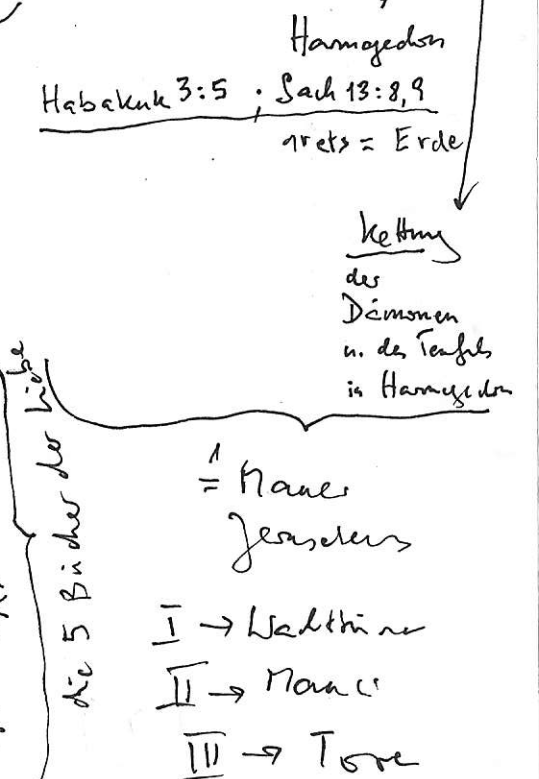 Harmagedon
Habakuk 3:5 ; Sach 13:8,9
arets = Erde
Kettung
der
Dämonen
u. des Teufels
in Harmagedon
die 5 Bücher der Liebe
≟ Mauer
Jerusalems
I → Wachtürme
II → Mauer
III → Tore